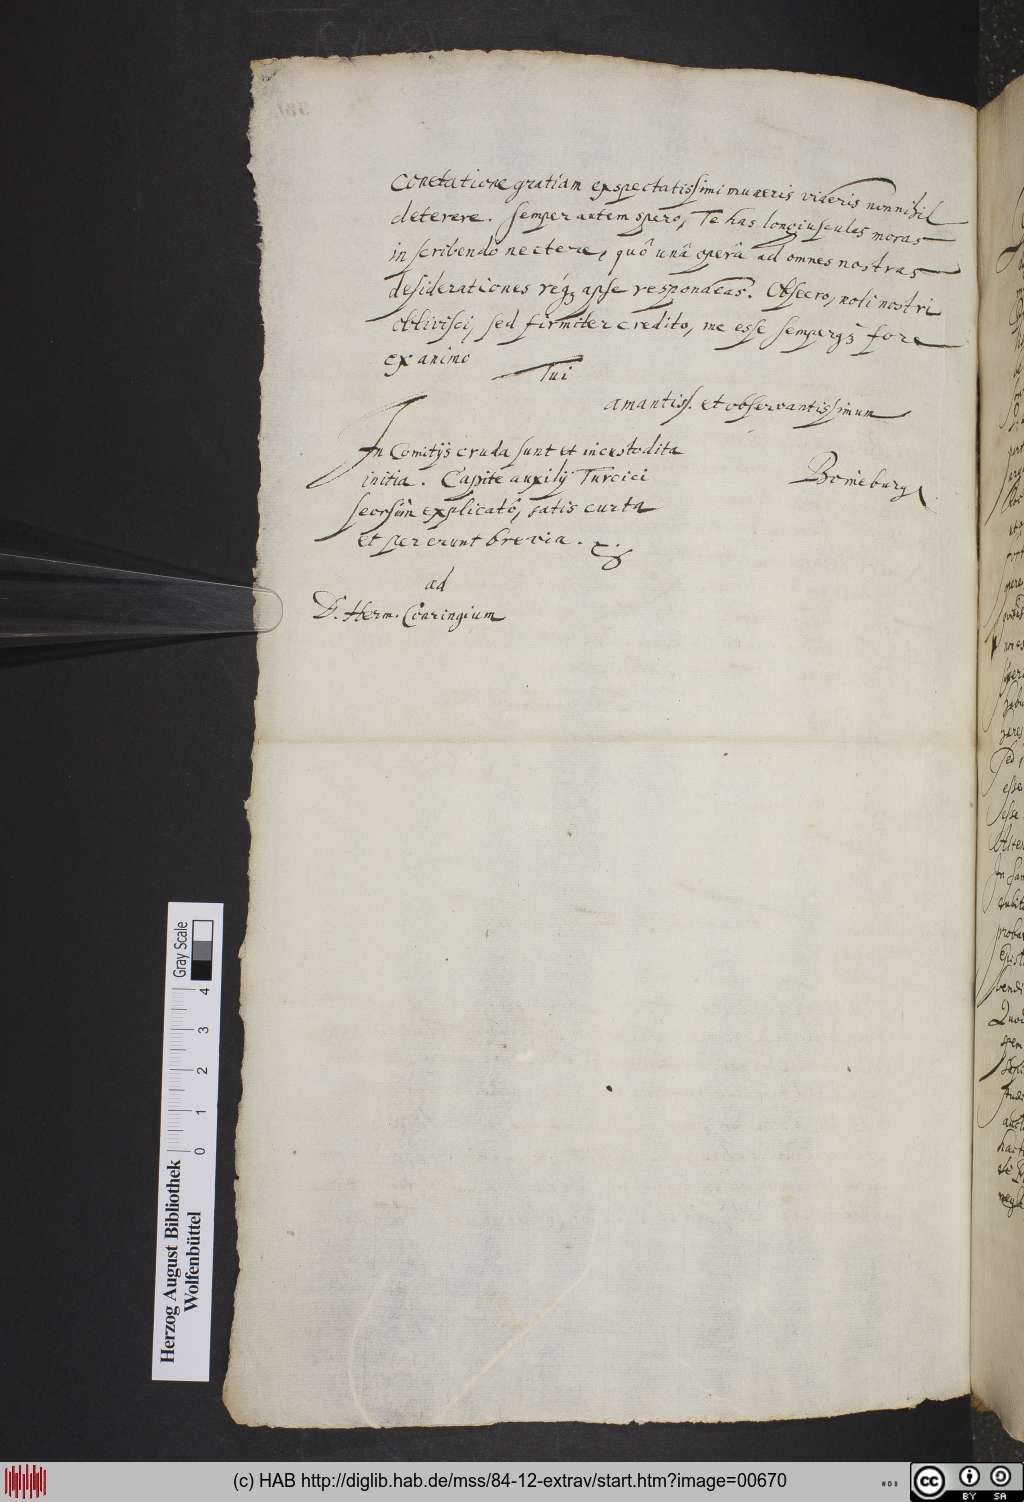 cunctatione gratiam exspectatissimi muneris videris nonnihil
deterere. Semper autem spero, Te has longiusculas moras
in scribendo nectere, quô unâ operâ ad omnes nostras
desiderationes reꝗ apse respondeas. Obsecro, noli nostri
oblivisci, sed firmiter credito, me esse semperꝗ fore
ex animo
Tui
amantiss. et observantissimum
In Comitijs cruda sunt et incustodita
initia. Capite auxilij Turcici
seorsim explicatô, satis curta
et pererunt brevia.
Boineburg
ad
D. Herm. Conringium
Gray Scale
4
3
2
1
0
Herzog August Bibliothek
Wolfenbüttel
(c) HAB http://diglib.hab.de/mss/84-12-extrav/start.htm?image=00670
cc BY SA